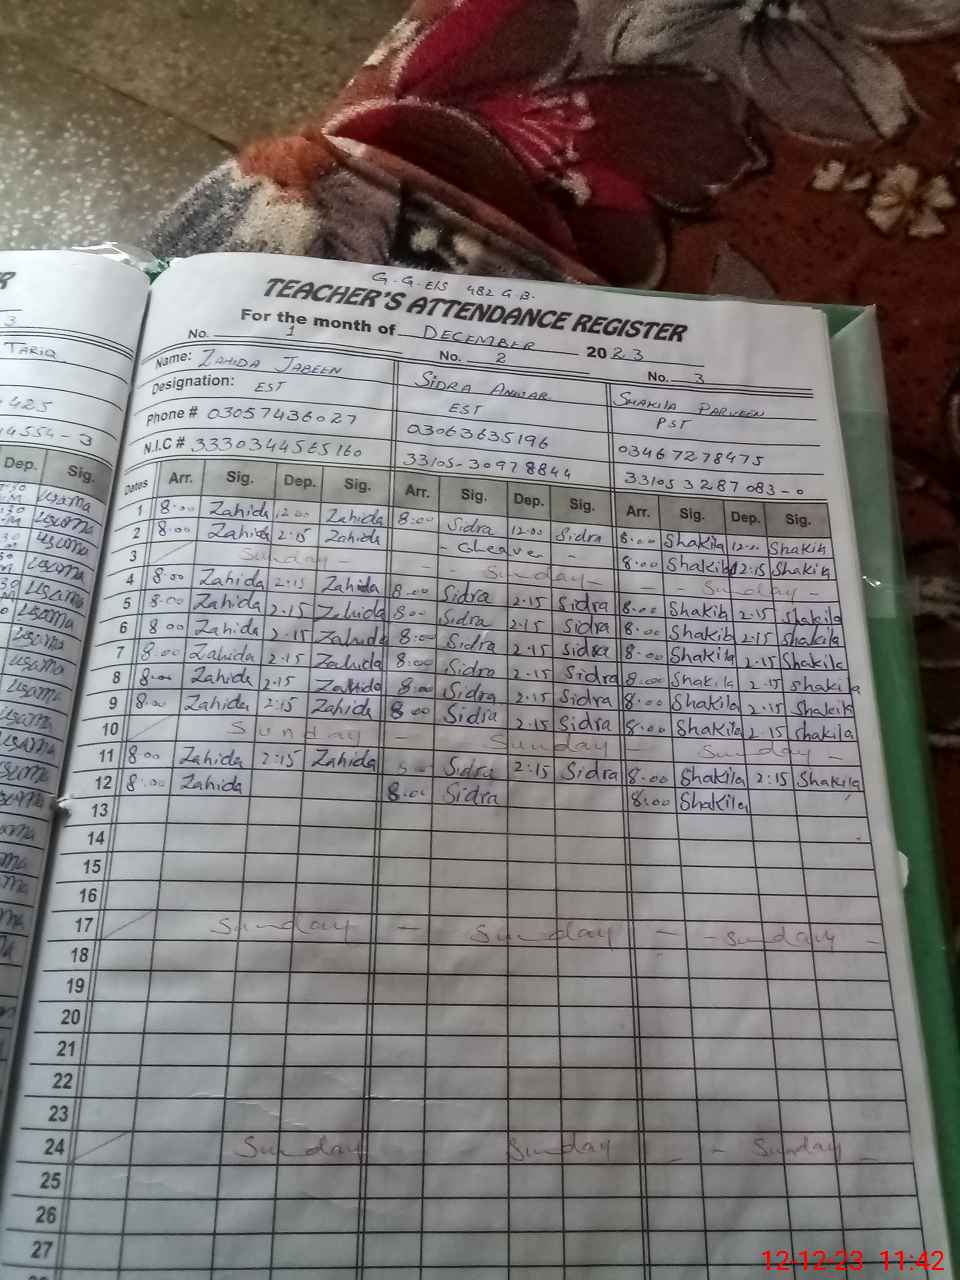 G.G.E/S 482 G.B.
TEACHER'S ATTENDANCE REGISTER
For the month of DECEMBER 2023
No. 1 No. 2 No. 3
Name: ZAHIDA JABEEN SIDRA ANWAR SHAKILA PARVEEN
Designation: EST EST PST
Phone # 03057436027 03063635196 03467278475
N.I.C # 3330344565160 33105-30978844 33105 3287083-0
Dates Arr. Sig. Dep. Sig. Arr. Sig. Dep. Sig. Arr. Sig. Dep. Sig.
1 8:00 Zahida 12:00 Zahida 8:00 Sidra 12:00 Sidra 8:00 Shakila 12:00 Shakila
2 8:00 Zahida 2:15 Zahida - Cleave - 8:00 Shakila 12:15 Shakila
3 Sunday - - - Sunday - - - Sunday -
4 8:00 Zahida 2:15 Zahida 8:00 Sidra 2:15 Sidra 8:00 Shakila 2:15 Shakila
5 8:00 Zahida 2:15 Zahida 8:00 Sidra 2:15 Sidra 8:00 Shakila 2:15 Shakila
6 8:00 Zahida 2:15 Zahida 8:00 Sidra 2:15 Sidra 8:00 Shakila 2:15 Shakila
7 8:00 Zahida 2:15 Zahida 8:00 Sidra 2:15 Sidra 8:00 Shakila 2:15 Shakila
8 8:00 Zahida 2:15 Zahida 8:00 Sidra 2:15 Sidra 8:00 Shakila 2:15 Shakila
9 8:00 Zahida 2:15 Zahida 8:00 Sidra 2:15 Sidra 8:00 Shakila 2:15 Shakila
10 Sunday - Sunday - Sunday -
11 8:00 Zahida 2:15 Zahida 8:00 Sidra 2:15 Sidra 8:00 Shakila 2:15 Shakila
12 8:00 Zahida 8:00 Sidra 8:00 Shakila
13
14
15
16
17 Sunday - Sunday - - Sunday -
18
19
20
21
22
23
24 Sunday Sunday - - Sunday -
25
26
27
R
3
TARIQ
425
14554-3
Dep. Sig.
Usama
Usama
Usama
Usama
Usama
Usama
Usama
Usama
Usama
12-12-23 11:42